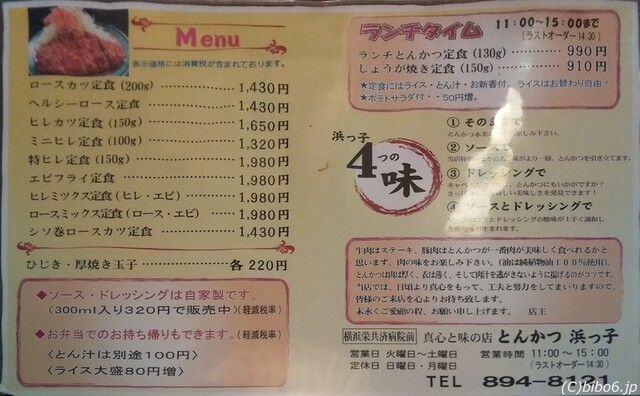 Menu
表示価格には消費税が含まれております。
ロースカツ定食 (200g) 1,430円
ヘルシーロース定食 1,430円
ヒレカツ定食 (150g) 1,650円
ミニヒレ定食 (100g) 1,320円
特ヒレ定食 (150g) 1,980円
エビフライ定食 1,980円
ヒレミックス定食 (ヒレ・エビ) 1,980円
ロースミックス定食 (ロース・エビ) 1,980円
シソ巻ロースカツ定食 1,430円
ひじき・厚焼き玉子 各 220円
◆ソース・ドレッシングは自家製です。
(300ml入り320円で販売中) (軽減税率)
◆お弁当でのお持ち帰りもできます。(軽減税率)
〈とん汁は別途100円〉
〈ライス大盛80円増〉
ランチタイム 11:00~15:00まで
(ラストオーダー14:30)
ランチとんかつ定食 (130g) 990円
しょうが焼き定食 (150g) 910円
★定食にはライス・とん汁・お新香付。ライスはお替わり自由!
★ポテトサラダ付・・50円増。
浜っ子
4つの味
① そのままで
とんかつ本来の
お楽しみ下さい。
② ソースで
とんかつを引き立てます。
③ ドレッシングで
とんかつにもいかがですか?
美味しさを発見できます!
ソースとドレッシングで
とドレッシングの酸味が上手く調和し
生まれます。
牛肉はステーキ、豚肉はとんかつが一番肉が美味しく食べれるかと
思います。肉の味をお楽しみ下さい。(油は純植物油100%使用)。
とんかつは肉は厚く、衣は薄く、そして肉汁を逃がさないように揚げるのがコツです。
当店では、日頃より真心をもって、工夫と努力をしてまいりますので、
皆様のご来店を心よりお待ち致します。
末永くご愛顧の程、お願い申し上げます。 店主
横浜栄共済病院前 真心と味の店 とんかつ 浜っ子
営業日 火曜日~土曜日 営業時間 11:00~15:00
定休日 日曜日・月曜日 (ラストオーダー14:30)
TEL 894-8121
(C)bibo6.jp